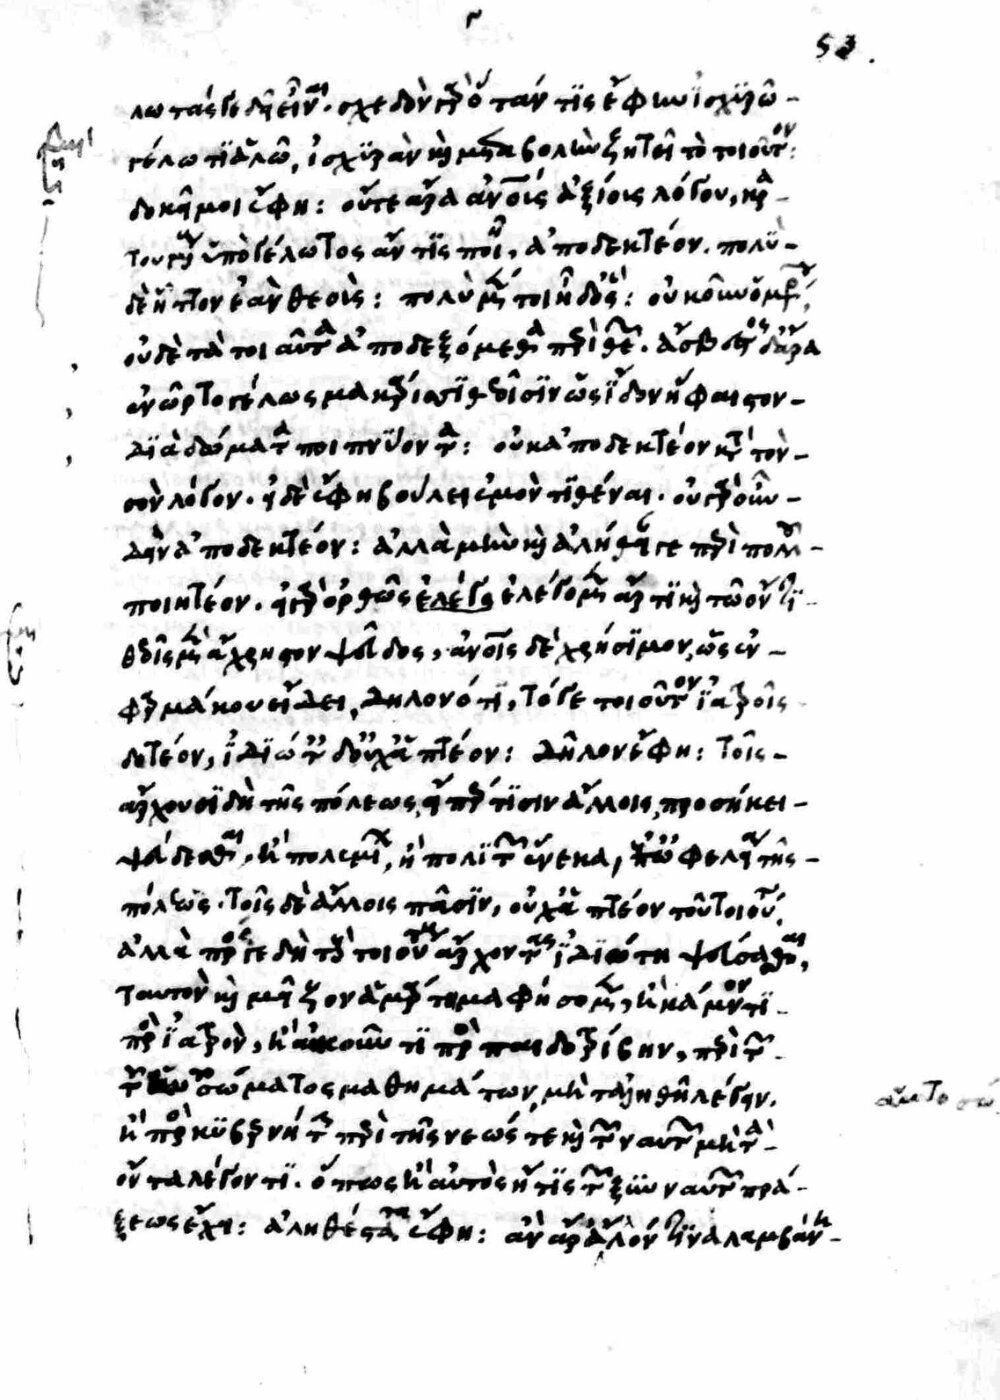 λωτάς γε δεῖ εἶναι. σχεδὸν γὰρ ὅταν τις ἐφιῶ ἰσχυρῶ –
γέλωτι ἁλῶ, ἰσχυρὰν καὶ μεταβολὴν ζητεῖ τὸ τοιοῦτον:
δοκεῖ μοι ἔφη: οὔτε ἄρα ἀνους ἀξίους λόγου, κρα –
τουμένους ὑπὸ γέλωτος ἄν τις ποιῆ, ἀποδεκτέον. πολὺ –
δὲ ἧττον ἐὰν θεούς: πολὺ μέντοι ἦ δ' ὅς: οὐκοῦν ὁμήρου,
οὐδὲ τὰ τοιαῦτα ἀποδεξόμεθα περὶ θεῶν. ἄσβεστος δ' ἄρα
ἐνῶρτο γέλως μακάρεσσι θεοῖσιν ὡς ἴδον ἥφαιστον –
διὰ δώματα ποιπνύοντα: οὐκ ἀποδεκτέον κατὰ τὸν –
σὸν λόγον. εἰ δὲ ἔφη βούλει ἐμὸν τιθέναι. οὐ γὰρ οὖν –
δὴν ἀποδεκτέον: ἀλλὰ μὴν καὶ ἀλήθειάν γε περὶ πολλοῦ –
ποιητέον. εἰ γὰρ ὀρθῶς ἐλέγο ἐλέγομεν ἄρτι καὶ τῶ ὄντι –
θεοῖς μὲν ἄχρηστον ψεῦδος, ἀνοις δὲ χρήσιμον, ὡς ἐν –
φαρμάκου εἴδει, δηλονότι, τό γε τοιοῦτον ἰατροῖς
δοτέον, ἰδιώταις δ' οὐχ ἁπτέον: δῆλον ἔφη: τοῖς –
ἄρχουσι δὴ τῆς πόλεως, εἴπερ τισὶν ἄλλοις, προσήκει –
ψεύδεσθαι, ἢ πολεμίων, ἢ πολιτῶν ἕνεκα, ἐπ' ὠφελείᾳ τῆς –
πόλεως. τοῖς δὲ ἄλλοις πᾶσιν, οὐχ ἁπτέον τοῦ τοιούτου.
ἀλλὰ πρός γε δὴ τοὺς τοιούτους ἄρχοντας ἰδιώτη ψεύσασθαι,
ταυτὸν καὶ μεῖζον ἁμάρτημα φήσομεν, ἢ κάμνοντι –
πρὸς ἰατρὸν, ἢ ἀσκοῦντι πρὸς παιδοτρίβην, περὶ τῶν –
τοῦ σώματος μαθημάτων, μὴ τἀληθῆ λέγειν.
ἢ πρὸς κυβερνήτην περὶ τῆς νεώς τε καὶ τῶν ναυτῶν μὴ τὰ –
ὄντα λέγοντι. ὅπως ἢ αὐτὸς ἤ τις τῶν ξυνναυτῶν πρά –
ξεως ἔχει: ἀληθέστατα ἔφη: ἂν ἄρα ἄλλόν τινα λαμβάνη –